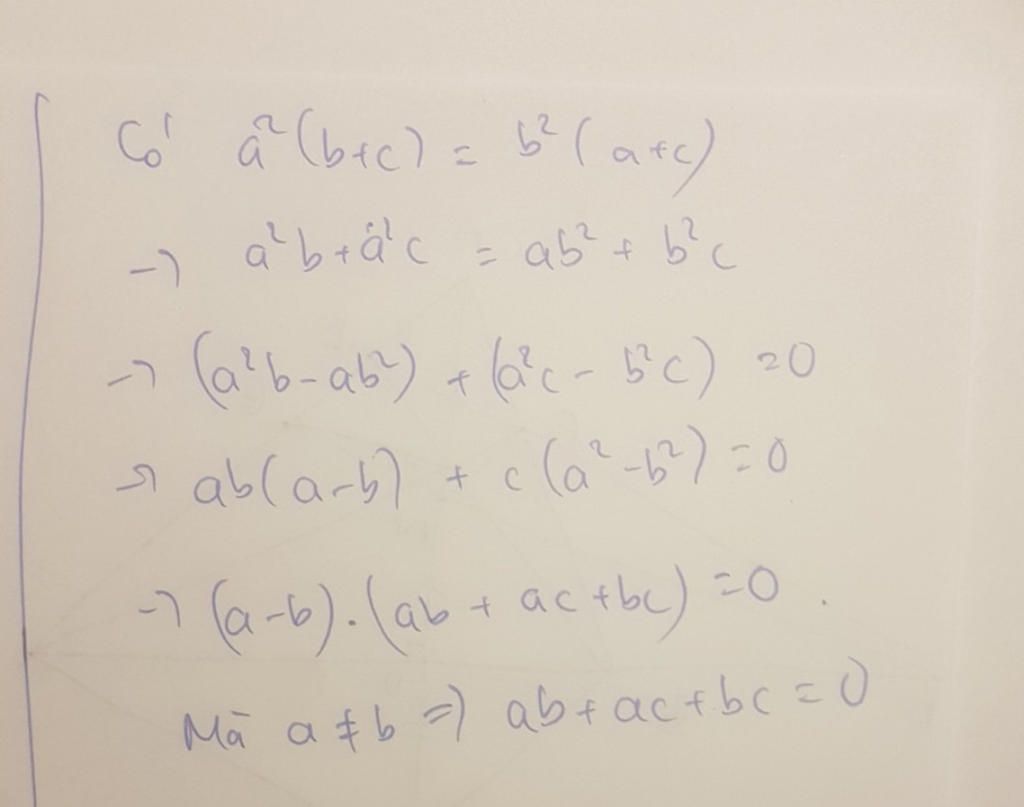 Có a²(b+c) = b²(a+c)
→ a²b + a²c = ab² + b²c
→ (a²b - ab²) + (a²c - b²c) = 0
→ ab(a-b) + c(a² - b²) = 0
→ (a-b).(ab + ac + bc) = 0.
Mà a ≠ b => ab + ac + bc = 0